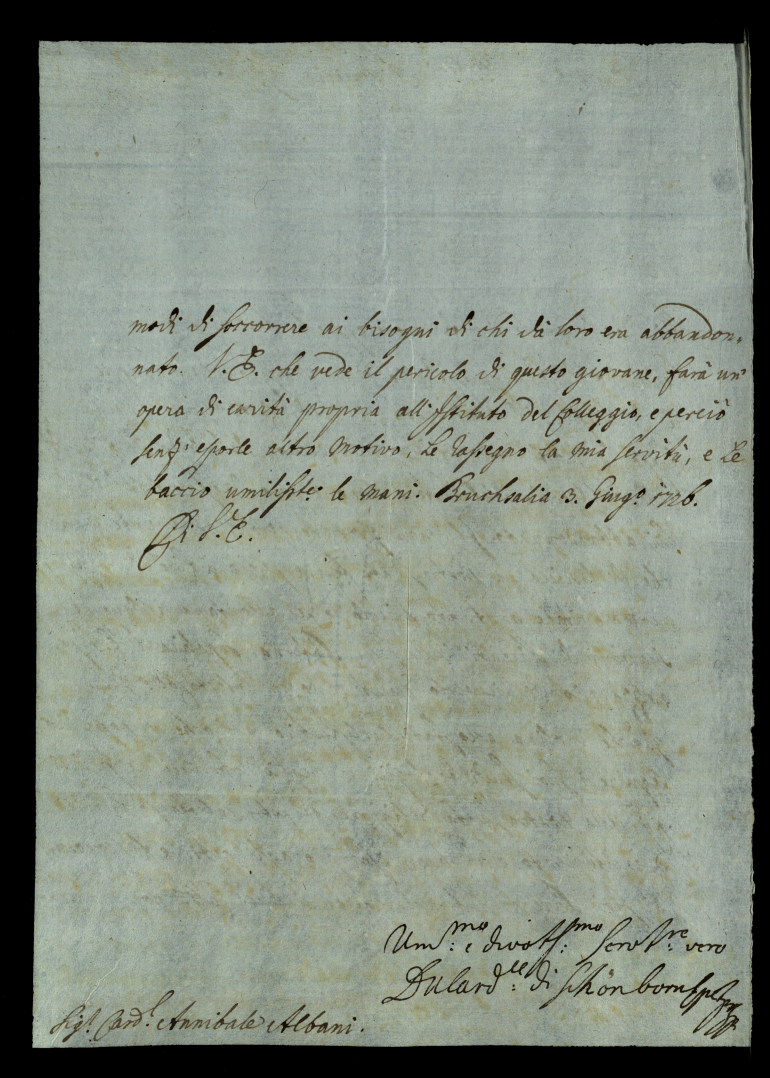 modi di soccorrere ai bisogni di chi dà loro era abbandon=
nato. V.E. che vede il pericolo di questo giovane, farà un'
opera di carità propria all'Istituto del Colleggio, e perciò
senz' esporle altro motivo, Le rassegno la mia servitù, e Le
baccio umilisste: le mani. Bruchsalia 3. Giugo. 1726.
Di V.E.
Ummo: e divotssmo: servtre: vero
Il Cardlle: di Schönborn
Sigr. Cardl. Annibale Albani.